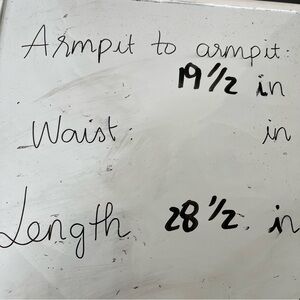 Armpit to armpit:
19 1/2 in
Waist: in
Length 28 1/2 in